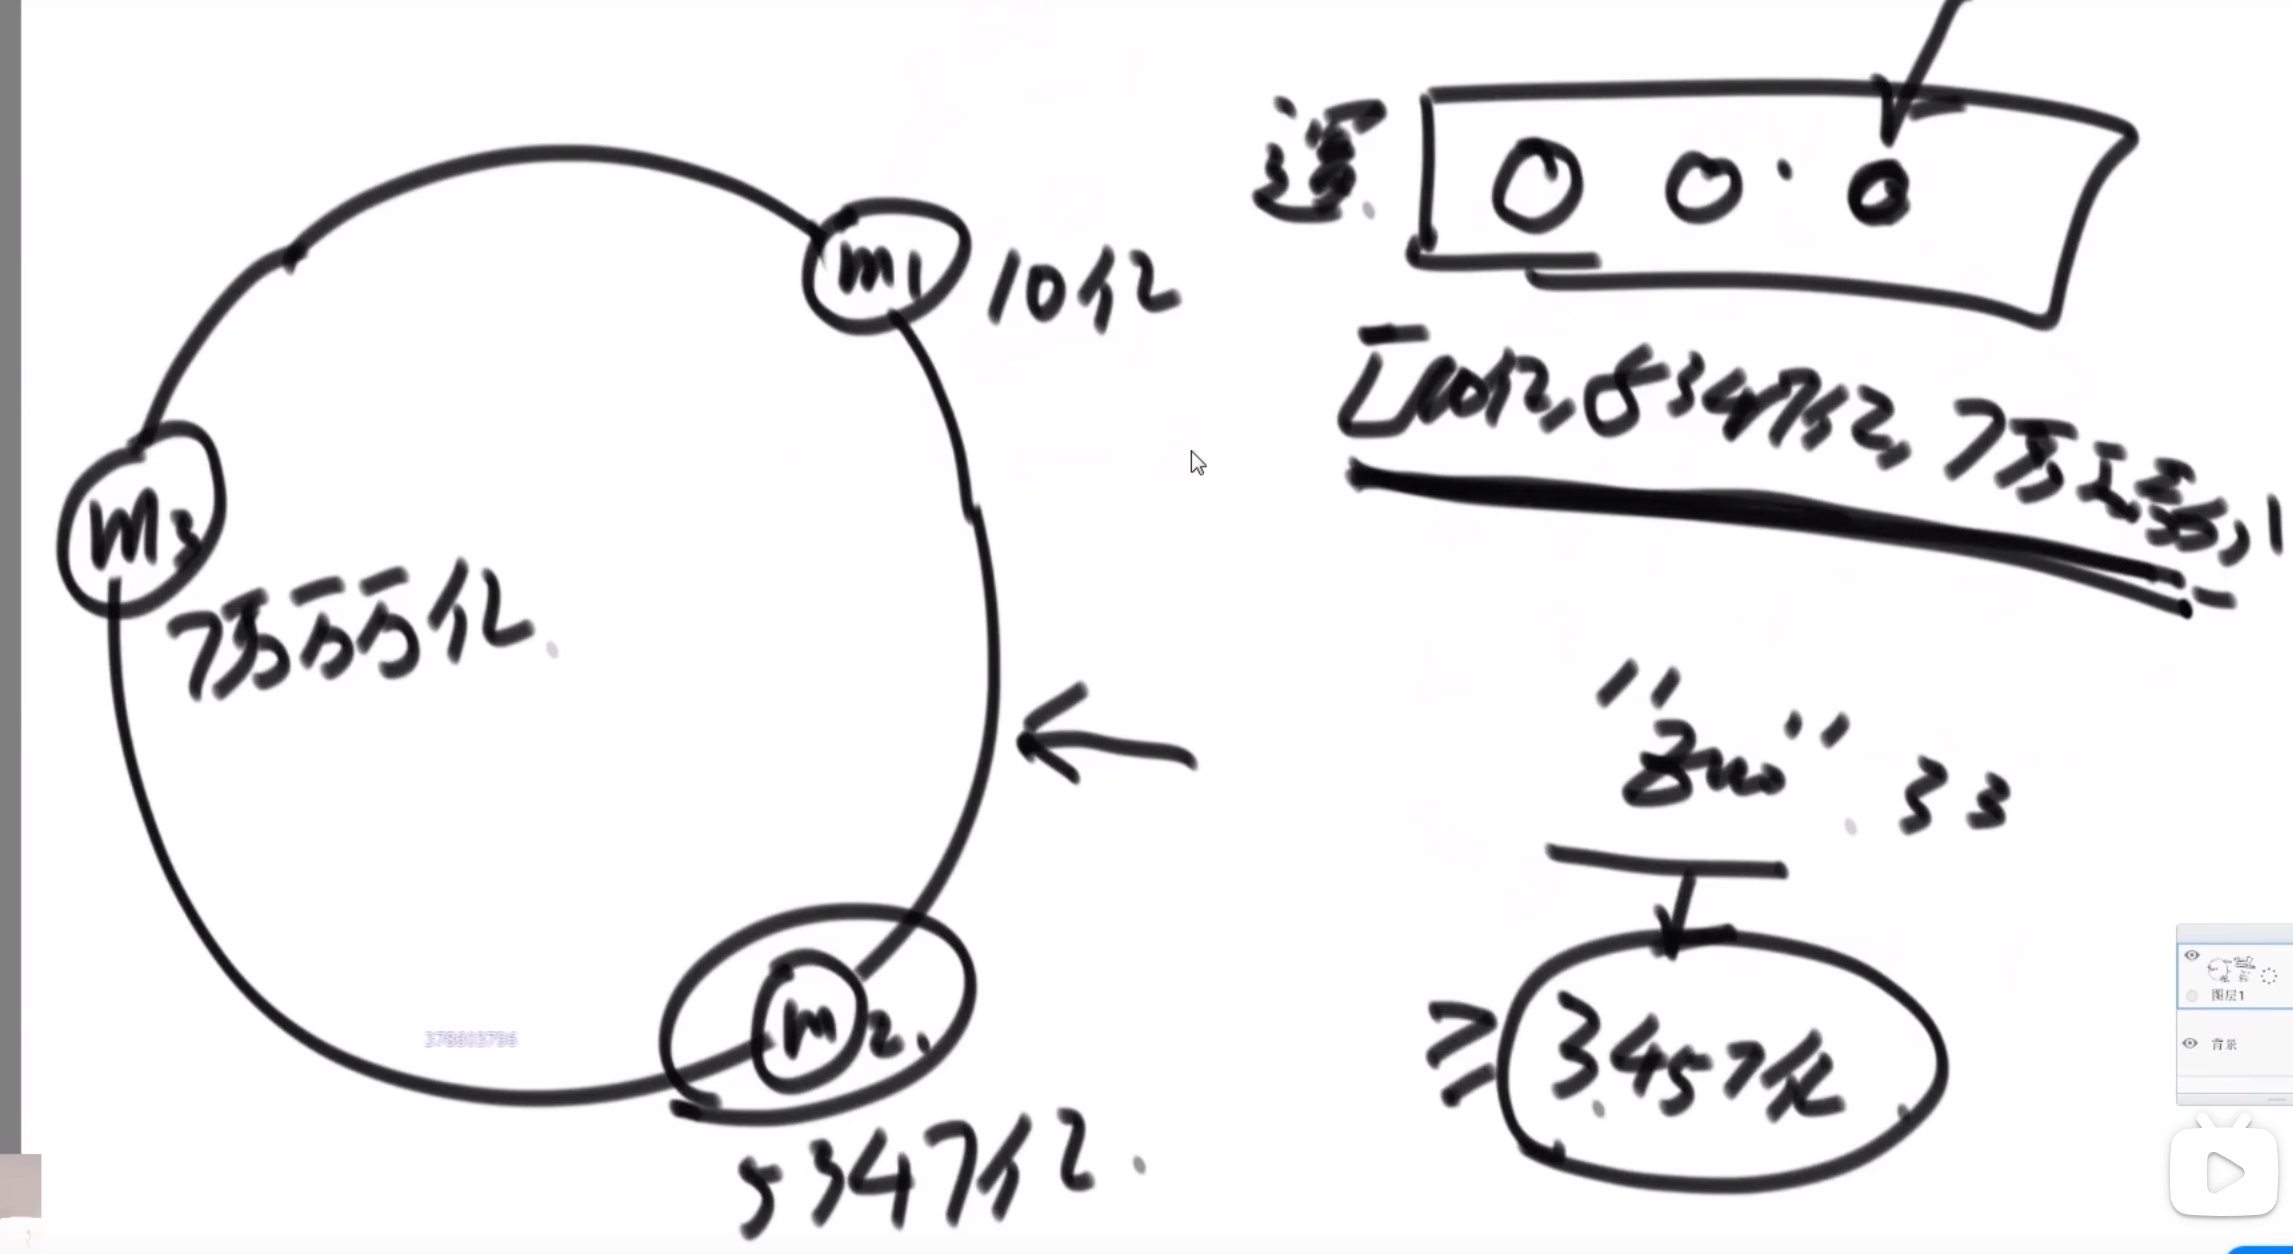 m1
10亿
m3
7万万万亿
m2.
5347亿.
378603796
[10亿,5347亿,7万
"zuo" 33
≥ 3457亿
图层1
背景